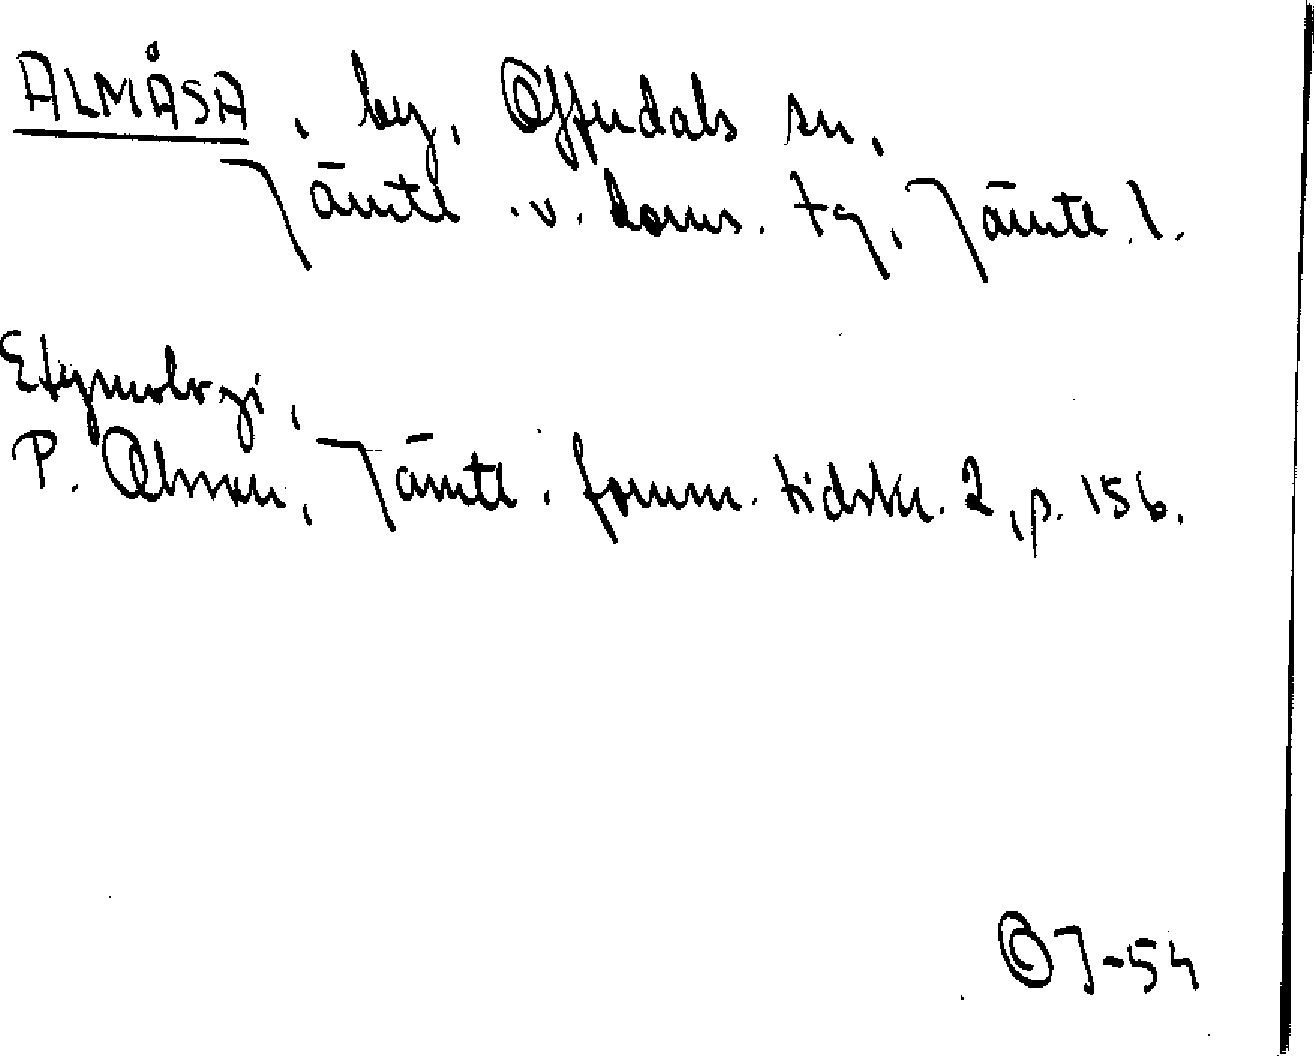 ALMÅSA, by, Offerdals sn,
Jämtl. v. doms. tg, Jämtl. l.
Etymologi,
P. Olsson, Jämtl. fornm. tidskr. 2, p. 156.
OJ-54